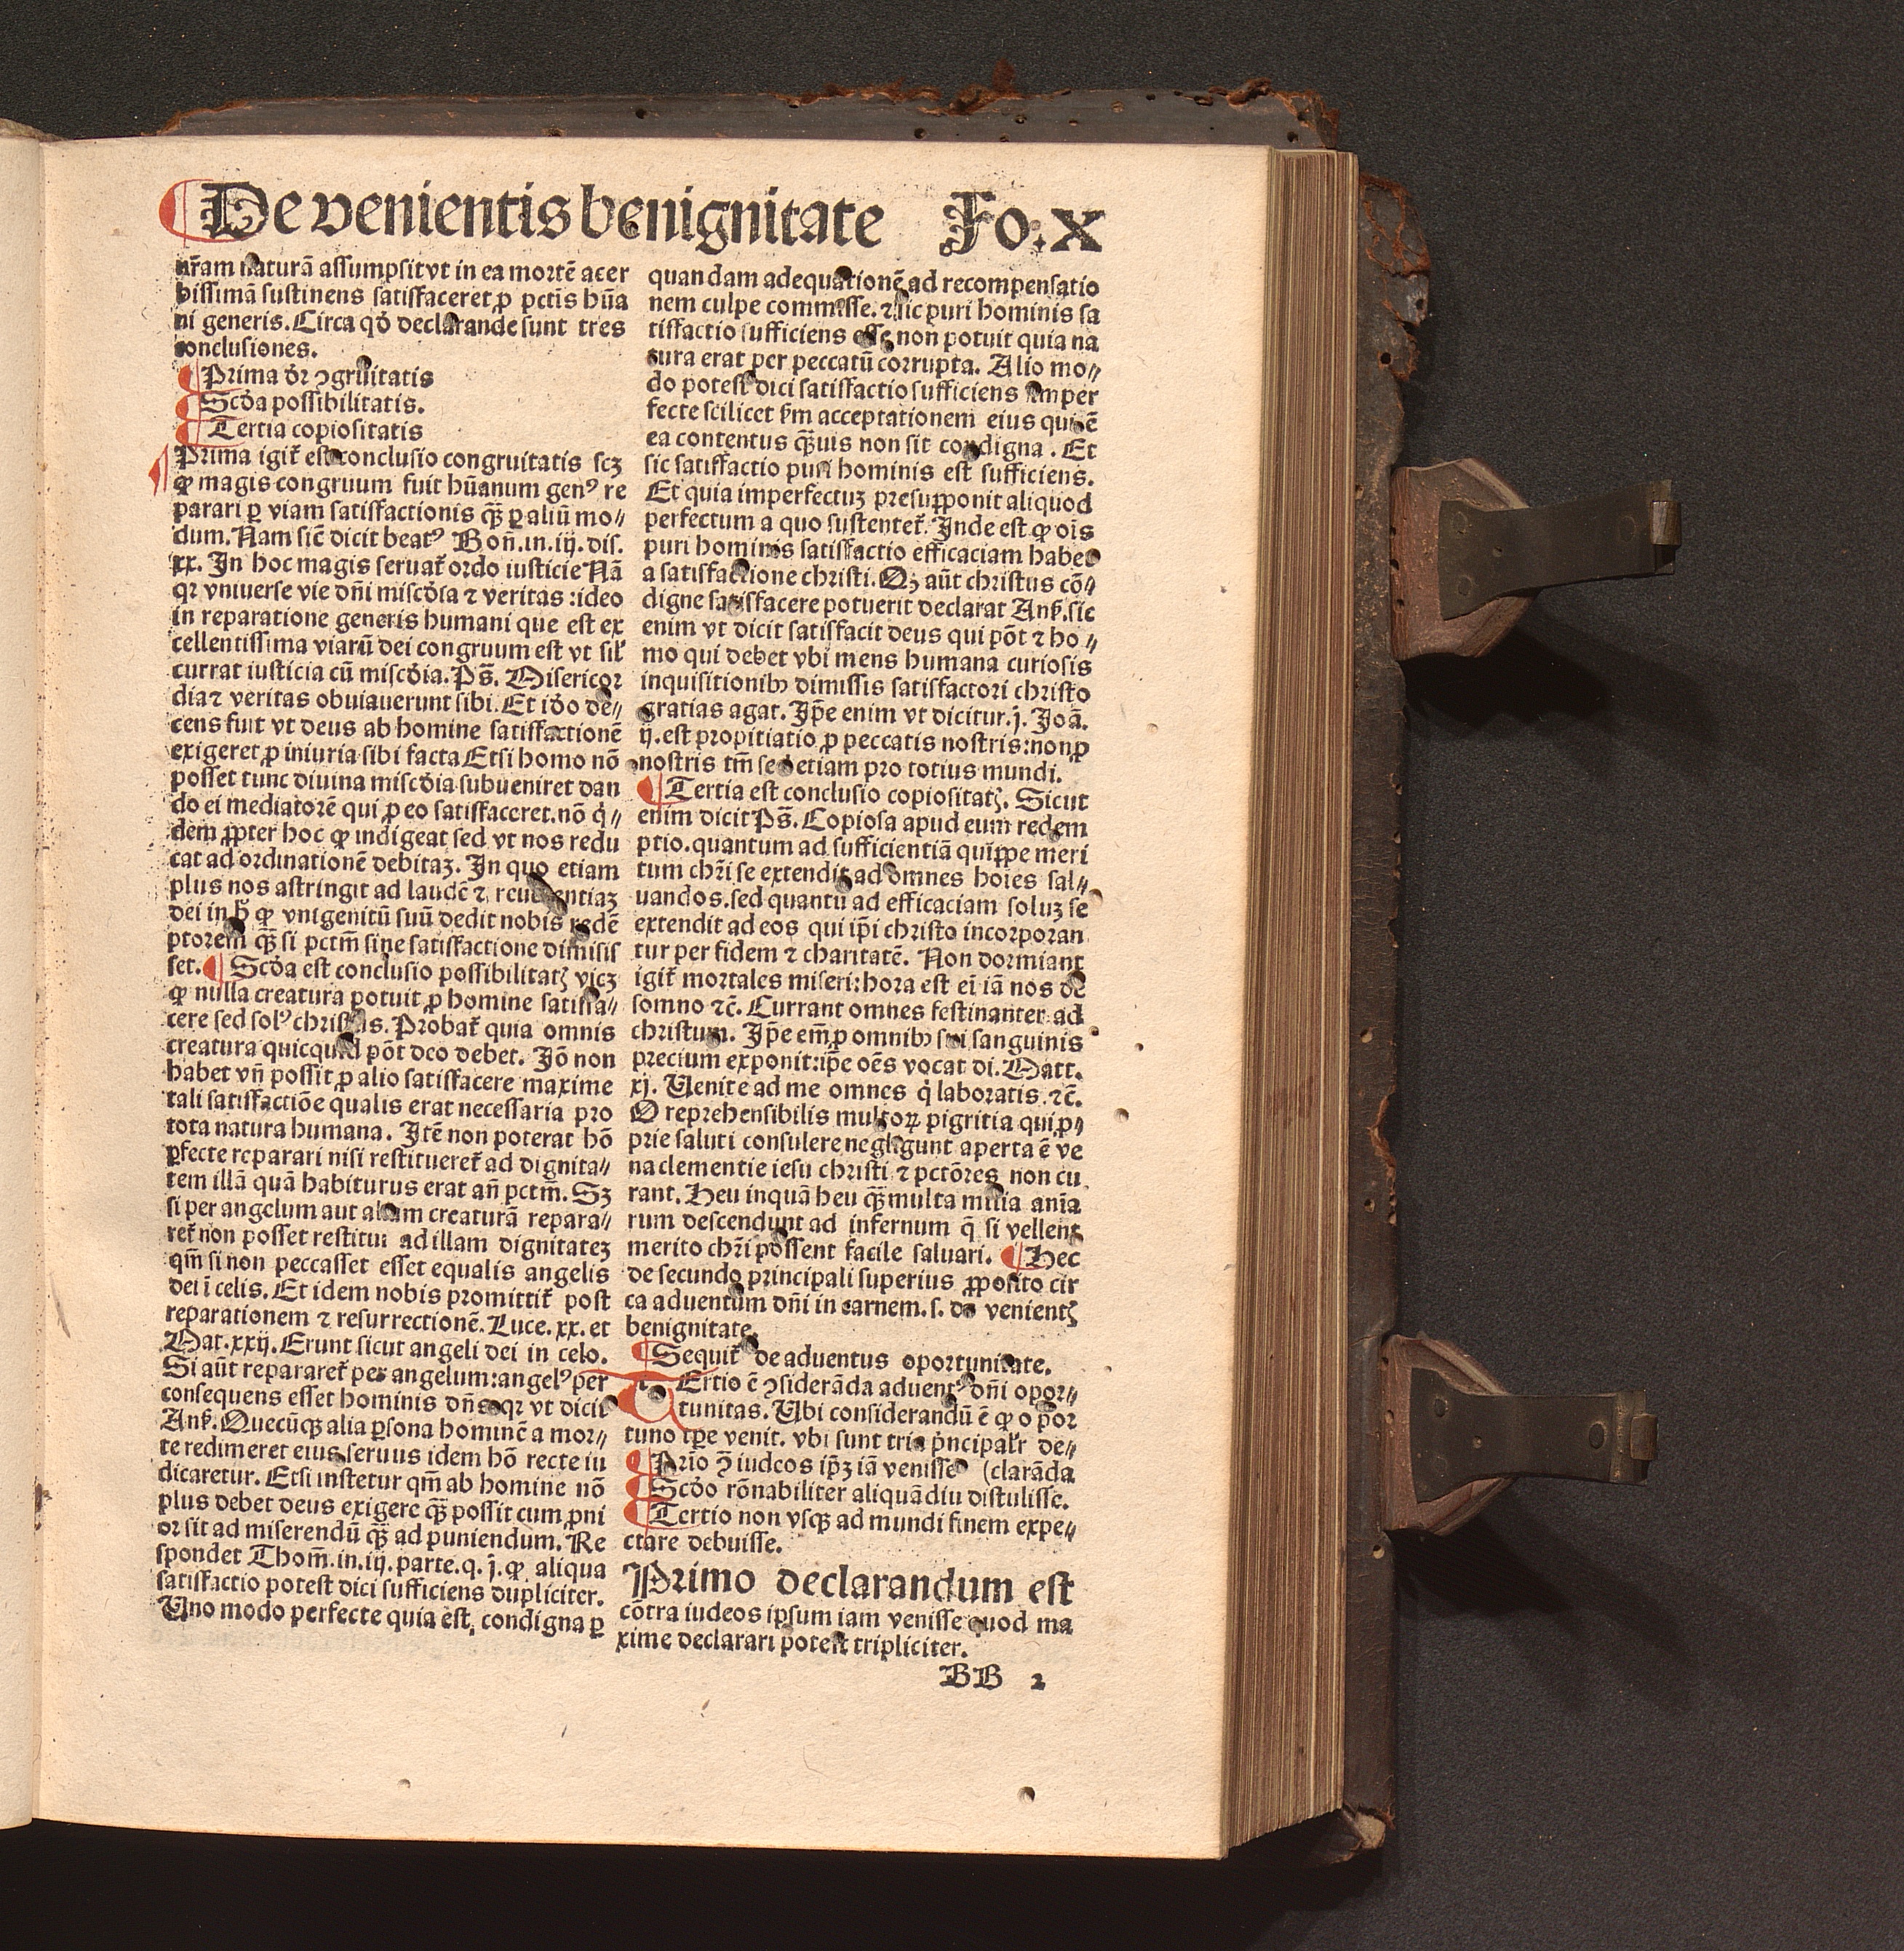 De venientis benignitate Fo.X
nr̄am naturā assumpsit vt in ea mortē acer
bissimā sustinens satisfaceret ꝓ pctīs hūa
ni generis. Circa qđ declarande sunt tres
conclusiones.
¶ Prima dr̄ ꝯgruitatis
¶ Scđa possibilitatis.
¶ Tertia copiositatis
Prima igit̄ est conclusio congruitatis scꝫ
ꝙ magis congruum fuit hūanum genꝰ re
parari ꝑ viam satisfactionis q̄ꝫ ꝑ aliū mo⸗
dum. Nam sic̄ dicit beatꝰ Bon̄. in. iij. dis.
xx. In hoc magis seruat̄ ordo iusticie Nā
qꝛ vniuerse vie dn̄i miscđia ⁊ veritas : ideo
in reparatione generis humani que est ex
cellentissima viarū dei congruum est vt sil̄
currat iusticia cū miscđia. Ps̄. Misericor
dia ⁊ veritas obuiauerunt sibi. Et iđo de⸗
cens fuit vt deus ab homine satisfactionē
exigeret ꝓ iniuria sibi facta Etsi homo nō
posset tunc diuina miscđia subueniret dan
do ei mediatorē qui ꝓ eo satisfaceret. nō q̇⸗
dem ꝓpter hoc ꝙ indigeat sed vt nos redu
cat ad ordinationē debitaꝫ. In quo etiam
plus nos astringit ad laudē ⁊ reuerentiaꝫ
dei in h̄ ꝙ vnigenitū suū dedit nobis redē
ptorem q̄ꝫ si pctm̄ sine satisfactione dimisis
set. ¶ Scđa est conclusio possibilitatꝭ vicꝫ
ꝙ nulla creatura potuit ꝓ homine satisfa⸗
cere sed solꝰ christus. Probat̄ quia omnis
creatura quicquid pōt deo debet. Iō non
habet vn̄ possit ꝓ alio satisfacere maxime
tali satisfactiōe qualis erat necessaria pro
tota natura humana. Itē non poterat hō
ꝑfecte reparari nisi restitueret̄ ad dignita⸗
tem illā quā habiturus erat an̄ pctm̄. Sꝫ
si per angelum aut aliam creaturā repara⸗
ret̄ non posset restitui ad illam dignitateꝫ
qm̄ si non peccasset esset equalis angelis
dei ī celis. Et idem nobis promittit̄ post
reparationem ⁊ resurrectionē. Luce. xx. et
Mat. xxij. Erunt sicut angeli dei in celo.
Si aūt repararet̄ per angelum: angelꝰ per
consequens esset hominis dn̄s qꝛ vt dicit
Anẜ. Quecūqꝫ alia ꝑsona hominē a mor⸗
te redimeret eius seruus idem hō recte iu
dicaretur. Etsi instetur qm̄ ab homine nō
plus debet deus exigere q̄ꝫ possit cum ꝓni
or sit ad miserendū q̄ꝫ ad puniendum. Re
spondet Thom̄. in. iij. parte. q. j. ꝙ aliqua
satisfactio potest dici sufficiens dupliciter.
Uno modo perfecte quia est, condigna ꝑ
quandam adequationē ad recompensatio
nem culpe commisse. ⁊ sic puri hominis sa
tisfactio sufficiens esse non potuit quia na
tura erat per peccatū corrupta. Alio mo⸗
do potest dici satisfactio sufficiens imper
fecte scilicet ẜm acceptationem eius qui ē
ea contentus q̄ꝫuis non sit condigna. Et
sic satisfactio puri hominis est sufficiens.
Et quia imperfectuꝫ presupponit aliquod
perfectum a quo sustentet̄. Inde est ꝙ oīs
puri hominis satisfactio efficaciam habet
a satisfactione christi. Qꝫ aūt christus cō⸗
digne satisfacere potuerit declarat Anẜ. sic
enim vt dicit satisfacit deus qui pōt ⁊ ho⸗
mo qui debet vbi mens humana curiosis
inquisitionibꝫ dimissis satisfactori christo
gratias agat. Ip̄e enim vt dicitur. j. Joā.
ij. est propitiatio ꝓ peccatis nostris: non ꝓ
nostris tm̄ sed etiam pro totius mundi.
¶ Tertia est conclusio copiositatꝭ. Sicut
enim dicit Ps̄. Copiosa apud eum redem
ptio. quantum ad sufficientiā quippe meri
tum chr̄i se extendit ad omnes hoīes sal⸗
uandos. sed quantū ad efficaciam soluꝫ se
extendit ad eos qui ip̄i christo incorporan
tur per fidem ⁊ charitatē. Non dormiant
igit̄ mortales miseri: hora est ei̅ iā nos de
somno ⁊c̄. Currant omnes festinanter ad
christum. Ip̄e em̄ ꝓ omnibꝫ sui sanguinis
precium exponit: ip̄e oēs vocat di. Matt.
xj. Uenite ad me omnes q̇ laboratis ⁊c̄.
O reprehensibilis multoꝝ pigritia qui ꝓ⸗
prie saluti consulere negligunt aperta ē ve
na clementie iesu christi ⁊ pctōres non cu
rant. Heu inquā heu q̄ꝫ multa milia anīa
rum descendunt ad infernum q̄ si vellent
merito chr̄i possent facile saluari. ¶ Hec
de secundo principali superius ꝓposito cir
ca aduentum dn̄i in carnem. s. de venientꝭ
benignitate.
¶ Sequit̄ de aduentus oportunitate.
Tertio ē ꝯsiderāda aduentꝰ dn̄i opor⸗
tunitas. Ubi considerandū ē ꝙ opor
tuno tp̄e venit. vbi sunt tria pͥncipalr̄ de⸗
¶ Prīo ꝯ̄ iudeos ip̄ꝫ iā venisse (clarāda
¶ Scđo rōnabiliter aliquādiu distulisse.
¶ Tertio non vsqꝫ ad mundi finem expe⸗
ctare debuisse.
Primo declarandum est
cōtra iudeos ipsum iam venisse quod ma
xime declarari potest tripliciter.
BB 2